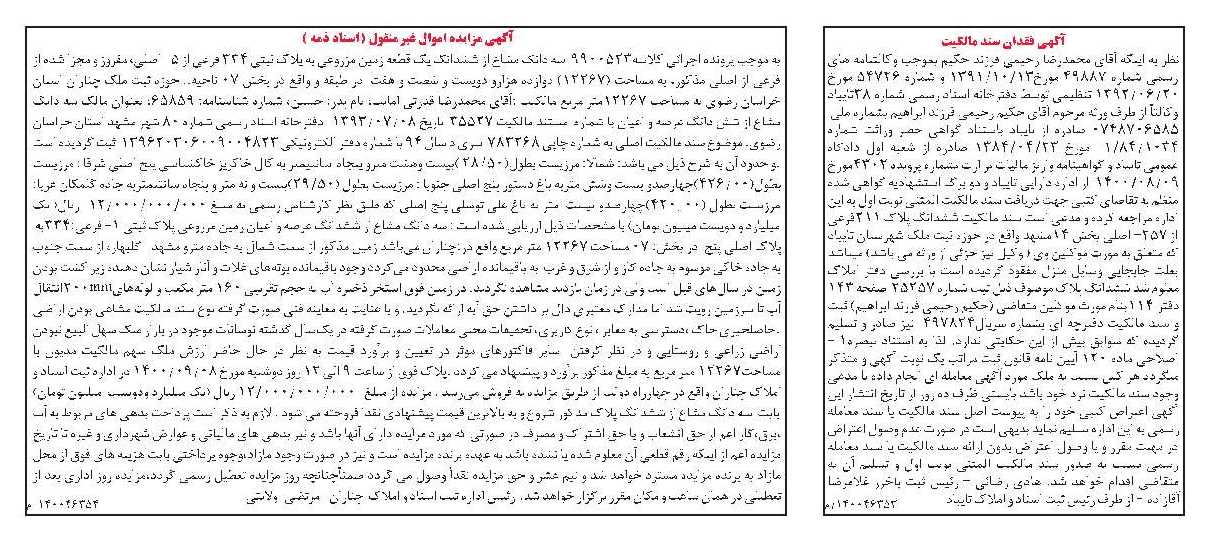 آگهی فقدان سند مالکیت
نظر به اینکه آقای محمدرضا رحیمی فرزند حکیم بموجب وکالتنامه های
رسمی شماره ۴۹۸۸۷ مورخ۱۳۹۱/۱۰/۱۳ و شماره ۵۴۷۲۶ مورخ
۱۳۹۲/۰۶/۲۰ تنظیمی توسط دفترخانه اسناد رسمی شماره ۲۸تایباد
وکالتاً از طرف ورثه مرحوم آقای حکیم رحیمی فرزند ابراهیم بشماره ملی
۰۷۴۸۷۰۶۵۸۵ صادره از تایباد باستناد گواهی حصر وراثت شماره
۱/۸۴/۱۰۳۴ مورخ ۱۳۸۴/۰۴/۲۳ صادره از شعبه اول دادگاه
عمومی تایباد و گواهینامه واریز مالیات بر ارث بشماره پرونده ۴۳۰۲مورخ
۱۴۰۰/۰۸/۰۹ از اداره دارایی تایباد و دو برگ استشهادیه گواهی شده
منظم به تقاضای کتبی جهت دریافت سند مالکیت المثنی نوبت اول به این
اداره مراجعه کرده و مدعی است سند مالکیت ششدانگ پلاک ۲۱۱فرعی
از ۲۵۷- اصلی بخش ۱۴مشهد واقع در حوزه ثبت ملک شهرستان تایباد
که متعلق به مورث موکلین وی (وکیل نیز جزئی از ورثه می باشد) میباشد
بعلت جابجایی وسایل منزل مفقود گردیده است با بررسی دفتر املاک
معلوم شد ششدانگ پلاک موصوف ذیل ثبت شماره ۲۵۲۵۷ صفحه ۱۴۳
دفتر ۱۱۴بنام مورث موکلین متقاضی (حکیم رحیمی فرزند ابراهیم) ثبت
و سند مالکیت دفترچه ای بشماره سریال۴۹۷۸۲۴ نیز صادر و تسلیم
گردیده که سوابق بیش از این حکایتی ندارد. لذا به استناد تبصره۱ -
اصلاحی ماده ۱۲۰ آیین نامه قانون ثبت مراتب یک نوبت آگهی و متذکر
میگردد هر کس نسبت به ملک مورد آگهی معامله ای انجام داده یا مدعی
وجود سند مالکیت نزد خود باشد بایستی ظرف ده روز از تاریخ انتشار این
آگهی اعتراض کتبی خود را به پیوست اصل سند مالکیت یا سند معامله
رسمی به این اداره تسلیم نماید بدیهی است در صورت عدم وصول اعتراض
در مهلت مقرر و یا وصول اعتراض بدون ارائه سند مالکیت یا سند معامله
رسمی نسبت به صدور سند مالکیت المثنی نوبت اول و تسلیم آن به
متقاضی اقدام خواهد شد. هادی رضائی - رئیس ثبت باخرز غلامرضا
آقازاده - از طرف رئیس ثبت اسناد و املاک تایباد
۱۴۰۰۴۶۳۵۲/م
آگهی مزایده اموال غیر منقول ( اسناد ذمه )
به موجب پرونده اجرائی کلاسه۹۹۰۰۵۲۳ سه دانگ مشاع از ششدانگ یک قطعه زمین مزروعی به پلاک ثبتی ۳۳۴ فرعی از ۵ اصلی، مفروز و مجزا شده از
فرعی از اصلی مذکور، به مساحت (۱۲۲۶۷) دوازده هزارو دویست و شصت و هفت در طبقه و واقع در بخش ۰۷ ناحیه.. حوزه ثبت ملک چناران استان
خراسان رضوی به مساحت ۱۲۲۶۷متر مربع مالکیت :آقای محمدرضا قدرتی امانت، نام پدر: حسین، شماره شناسنامه: ۶۵۸۵۹، بعنوان مالک سه دانگ
مشاع از شش دانگ عرصه و اعیان با شماره مستند مالکیت ۳۵۵۲۷ تاریخ ۱۳۹۳/۰۷/۰۸ دفترخانه اسناد رسمی شماره ۸۰ شهر مشهد استان خراسان
رضوی، موضوع سند مالکیت اصلی به شماره چاپی ۷۸۳۲۶۸ سری د سال ۹۴ با شماره دفتر الکترونیکی ۱۳۹۶۲۰۳۰۶۰۰۹۰۰۴۸۲۳ ثبت گردیده است
.و حدود آن به شرح ذیل می باشد: شمالا: مرزیست بطول(۲۸/۵۰)بیست وهشت مترو پنجاه سانتیمتر به کال خاکریز خاکشناسی پنج اصلی شرقا : مرزیست
بطول(۴۲۶/۰۰)چهارصدو بیست وشش متربه باغ دستور پنج اصلی جنوبا : مرزیست بطول (۲۹/۵۰)بیست و نه متر و پنجاه سانتیمتربه جاده گلمکان غربا:
مرزیست بطول (۴۲۰/۰۰)چهارصدو بیست متر به باغ علی توسلی پنج اصلی که طبق نظر کارشناس رسمی به مبلغ ۱۲/۰۰۰/۰۰۰/۰۰۰ ریال( یک
میلیارد و دویست میلیون تومان) با مشخصات ذیل ارزیابی شده است : سه دانگ مشاع از ششد نگ عرصه و اعیان زمین مزروعی پلاک ثبتی ۱- فرعی:۳۳۴به
پلاک اصلی پنج در بخش: ۰۷ مساحت ۱۲۲۶۷ متر مربع واقع در:چناران می‌باشد زمین مذکور از سمت شمال به جاده مترو مشهد گلبهار، از سمت جنوب
به جاده خاکی موسوم به جاده گاز و از شرق و غرب به باقیمانده اراضی محدود می‌گردد وجود باقیمانده بوته‌های غلات و آثار شیار نشان دهنده زیر کشت بودن
زمین در سال‌های قبل است ولی در زمان بازدید مشاهده نگردید. در زمین فوق استخر ذخیره آب به حجم تقریبی ۱۶۰ متر مکعب و لوله‌های۲۰۰mmانتقال
آب تا سرزمین رویت شد اما مدارک معتبری دال بر داشتن حق آبه ارائه نگردید. و با عنایت به معاینه فنی صورت گرفته نوع سند مالکیت مشاعی بودن اراضی
،حاصلخیزی خاک،دسترسی به معابر، نوع کاربری، تحقیقات محلی معاملات صورت گرفته در یک‌سال گذشته نوسانات موجود در بازار مسکن سهل البیع نبودن
اراضی زراعی و روستایی و در نظر گرفتن سایر فاکتورهای موثر در تعیین و برآورد قیمت به نظر در حال حاضر ارزش ملک سهم مالکیت مدیون با
مساحت۱۲۲۶۷ متر مربع به مبلغ مذکور برآورد و پیشنهاد می گردد .پلاک فوق از ساعت ۹ الی ۱۲ روز دوشنبه مورخ ۱۴۰۰/۰۹/۰۸ در اداره ثبت اسناد و
املاک چناران واقع در چهارراه دولت از طریق مزایده به فروش می‌رسد . مزایده از مبلغ ۱۲/۰۰۰/۰۰۰/۰۰۰ ریال (یک میلیاردودویست میلیون تومان)
بابت سه دانگ مشاع از ششد نگ پلاک مذکور شروع و به بالاترین قیمت پیشنهادی نقدا فروخته می شود . لازم به ذکر است پرداخت بدهی های مربوط به آب
،برق،گاز اعم از حق انشعاب و یا حق اشتراک و مصرف در صورتی که مورد مزایده دارای آنها باشد و نیز بدهی های مالیاتی و عوارض شهرداری و غیره تا تاریخ
مزایده اعم از اینکه رقم قطعی آن معلوم شده یا نشده باشد به عهده برنده مزایده است و نیز در صورت وجود مازاد،وجوه پرداختی بابت هزینه های فوق از محل
مازاد به برنده مزایده مسترد خواهد شد و نیم عشر و حق مزایده نقداً وصول می گردد ضمناًچنانچه روز مزایده تعطیل رسمی گردد،مزایده روز اداری بعد از
تعطیلی در همان ساعت و مکان مقرر برگزار خواهد شد. رئیس اداره ثبت اسناد و املاک چناران مرتضی ولایتی
۱۴۰۰۴۶۳۵۴ م